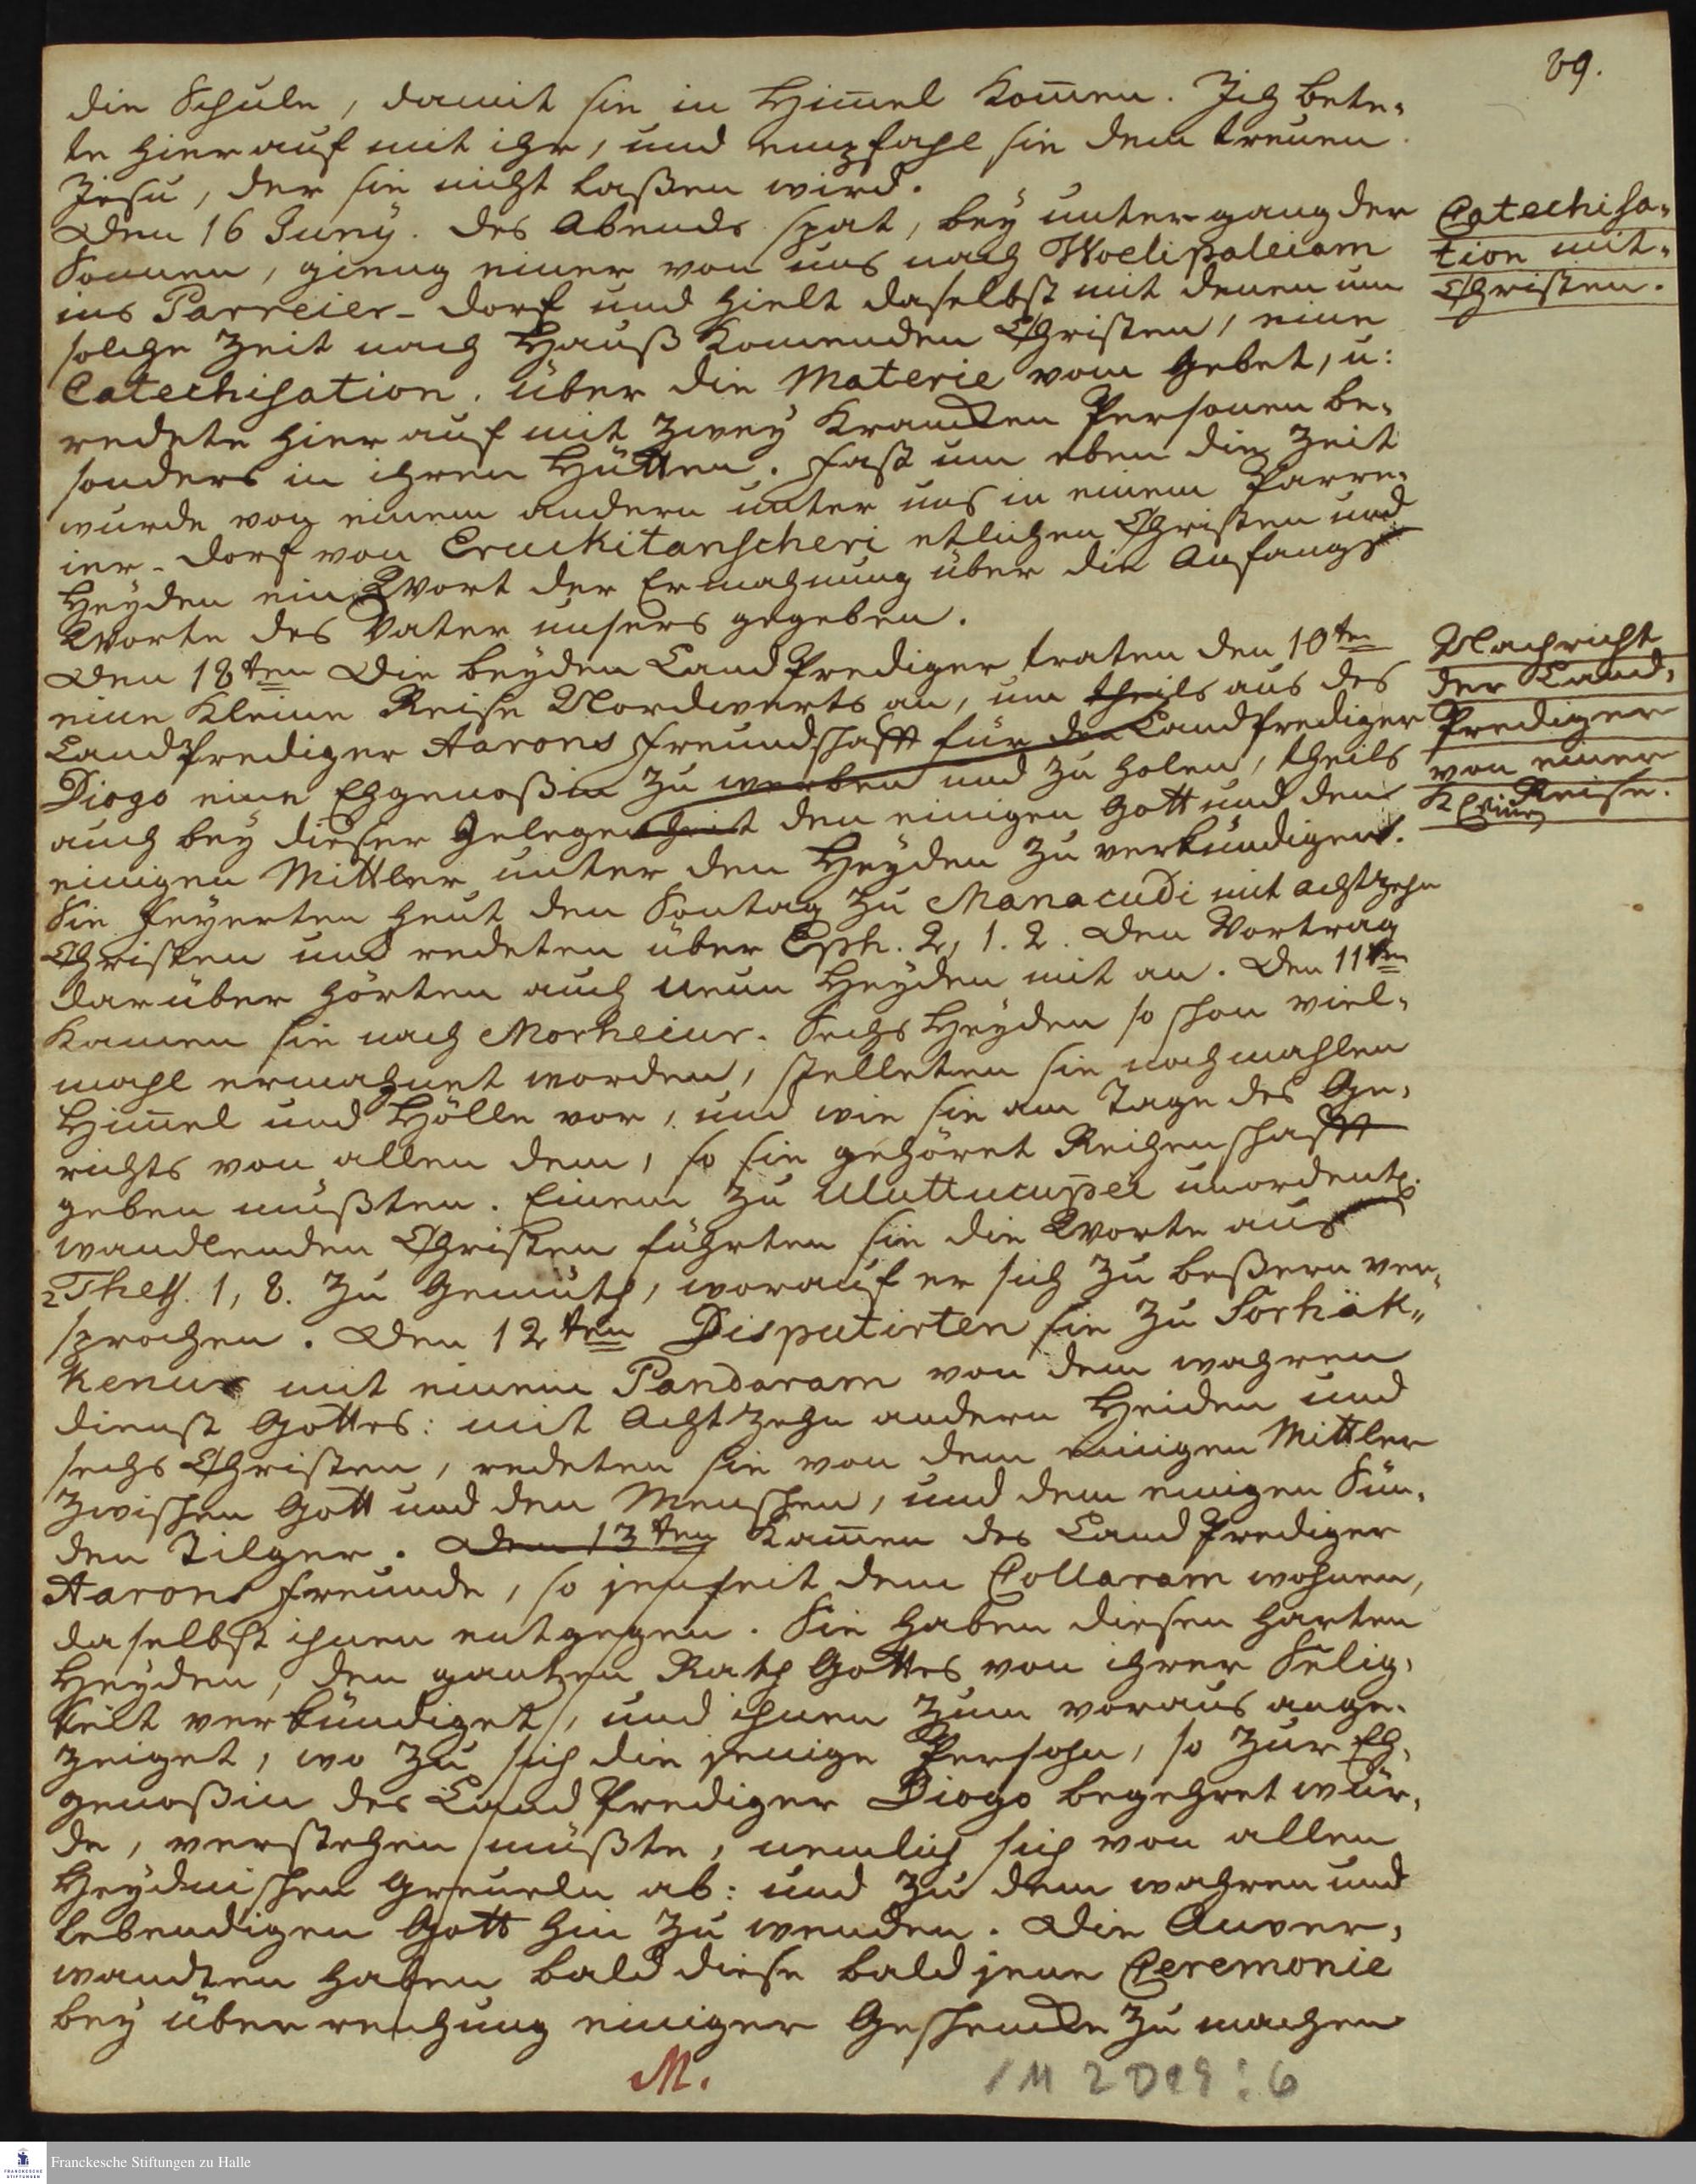 89.
die Schule, damit sie in Him̅el kom̅en. Ich bete-
te hierauf mit ihr, und empfahl sie dem treuen
Jesu, der sie nicht laßen wird.
Den 16 Juny. des Abends spat, bey untergang der
Sonnen, gieng einer von uns nach Woelipaleiam
ins Parreier-dorf und hielt daselbst mit denen um
solche Zeit nach Hauß komenden Christen, eine
Catechisation. über die Materie vom Gebet, u:
redete hierauf mit zwey krancken Personen be-
sonders in ihren Hütten. Fast um eben die Zeit
wurde von einem andern unter uns in einem Parre-
ier-dorf von Eruckitanscheri etlichen Christen und
Heyden ein Wort der Ermahnung über die Anfangs
Worte des Vater unsers gegeben.
Catechisa-
tion mit
Christen.
Den 18ten Die beyden LandPrediger traten den 10ten
eine kleine Reise Nordwerts an, um theils aus des
LandPrediger Aarons Freundschafft für den LandPrediger
Diogo eine Ehgenoßin zu werben und zu holen, theils
auch bey dieser Gelegenheit den einigen Gott und den
einigen Mittler unter den Heyden zu verkündigen.
Sie feyerten heut den Sontag zu Manacudi mit achtzehn
Christen und redeten über Eph. 2, 1. 2. Den Vortrag
darüber hörten auch neun Heyden mit an. Den 11ten
kamen sie nach Morheiur. Sechs Heyden so schon viel-
mahl ermahnet worden, stelleten sie nochmahlen
Him̅el und Hölle vor, und wie sie am Tage des Ge-
richts von allen dem, so sie gehöret Rechenschafft
geben müßten. Einem zu Uluttucupei unordentl.
wandlenden Christen führten sie die Worte aus
2 Thess. 1, 8. zu Gemüth, worauf er sich zu beßern ver-
sprochen. Den 12ten Disputirten sie zu Sorhäk-
kenur mit einem Pandaram von dem wahren
dienst Gottes: mit Achtzehn andern Heiden und
sechs Christen, redeten sie von dem einigen Mittler
zwischen Gott und den Menschen, und dem einigen Sün-
den Tilger. Den 13ten kam̅en des LandPrediger
Aarons Freunde, so jenseit dem Collaram wohnen,
daselbst ihnen entgegen. Sie haben diesen harten
Heyden, den gantzen Rath Gottes von ihrer Selig-
keit verkündiget, und ihnen zum voraus ange-
zeiget, wo zu sich die jenige Persohn, so zur Eh-
genoßin des LandPrediger Diogo begehret wür-
de, verstehen müßte, nemlich sich von allen
Heydnischen Greueln ab: und zu dem wahren und
lebendigen Gott hin zu wenden. Die Anver-
wandten haben bald diese bald jene Ceremonie
bey überreichung einiger Geschencke zu machen
Nachricht
der Land-
Prediger
von einer
kleinen Reise.
M.
1 M 2 D
Franckesche Stiftungen zu Halle